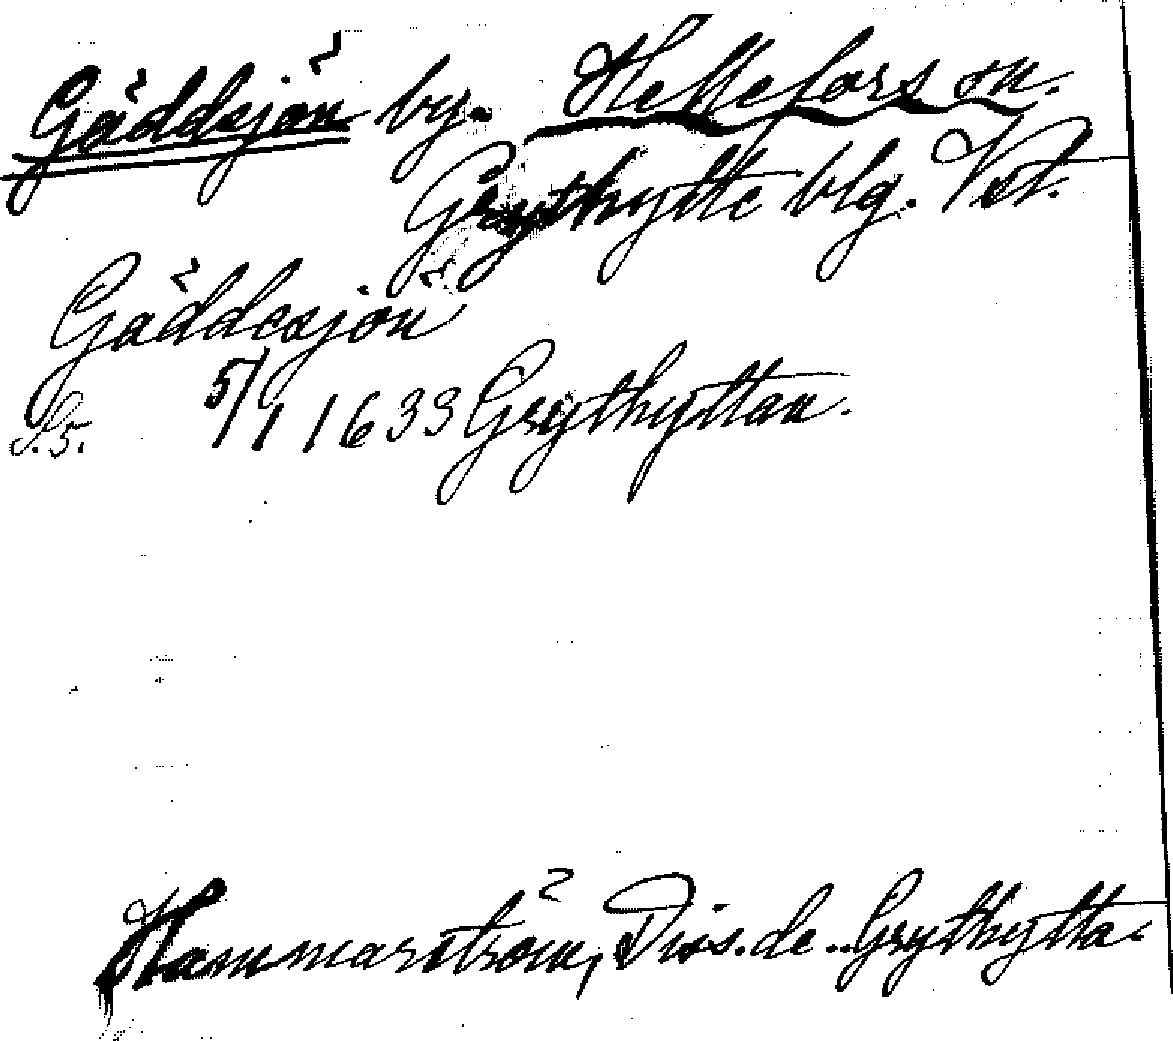 Gäddsjön by. Hellefors sn.
Grythytte blg. Vstl.
Gäddesjön
S. 5. 5/1 1633 Grythyttan.
Hammarström, Diss. de .. Grythytta.